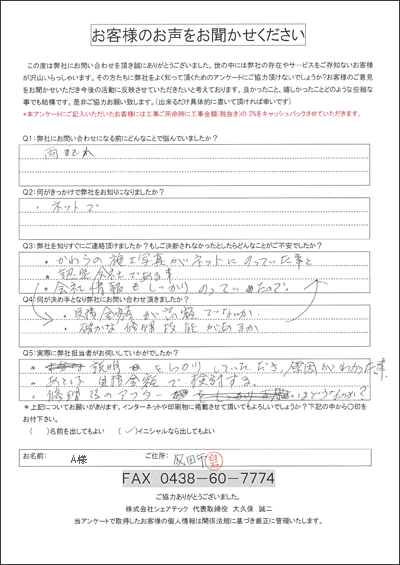 お客様のお声をお聞かせください
この度は弊社にお問い合わせを頂き誠にありがとうございました。世の中には弊社の存在やサービスをご存知ないお客様
が沢山いらっしゃいます。その方たちに弊社をよく知って頂くためのアンケートにご協力頂けないでしょうか?お客様のご意見
をお聞かせいただき今後の活動に反映させていただきたいと考えております。良かったこと、嬉しかったことどのような些細な
事でも結構です。是非ご協力お願い致します。(出来るだけ具体的に書いて頂ければ幸いです)
*本アンケートにご記入いただいたお客様には工事ご用命時に工事金額(税抜き)の 2%をキャッシュバックさせていただきます。
Q1:弊社にお問い合わせになる前にどんなことで悩んでいましたか?
雨もれ
Q2:何がきっかけで弊社をお知りになりましたか?
・ネットで
Q3:弊社を知りすぐにご連絡頂けましたか?もしご決断されなかったとしたらどんなことがご不安でしたか?
・かわらの施工写真がネットにのっていた事と
・会社である事
・会社情報もしっかりのっていたので。
Q4:何が決め手となり弊社にお問い合わせ頂きましたか?
・見積金額が高額でないか
・確かな修理技能があるか
Q5:実際に弊社担当者がお伺いしていかがでしたか?
・説明をしっかりしていただき、原因がわかった事。
・あとは見積金額で検討する。
・修理後のアフターはどうか?
*上記についてお願いがあります。インターネットや印刷物に掲載させて頂いてもよろしいでしょうか?下記の中から〇印を
お付下さい。
( )名前を出してもよい (✓)イニシャルなら出してもよい
お名前: A様 ご住所: 成田市
FAX 0438-60-7774
ご協力ありがとうございました。
株式会社シェアテック 代表取締役 大久保 誠二
当アンケートで取得したお客様の個人情報は関係法規に基づき厳正に管理いたします。